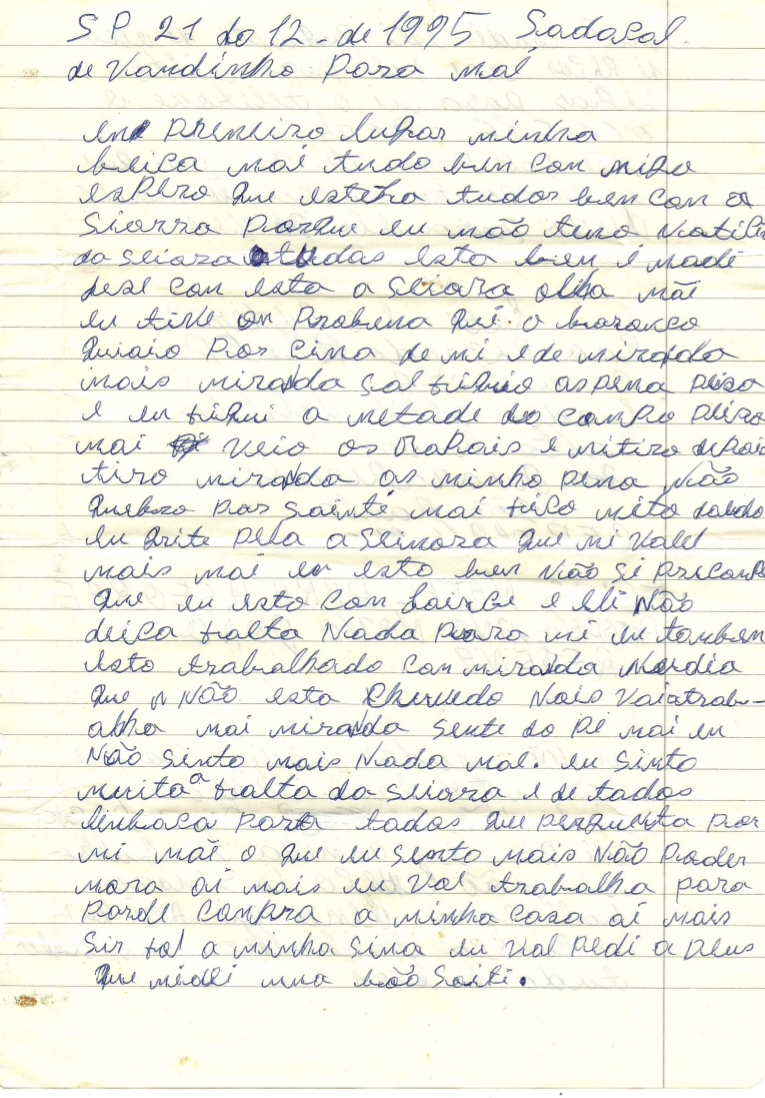 SP 21 do 12 - de 1995 Sadasal.
de Vandinho Para mai
en Primeiro luhar minha
beica mai tudo ben con migo
espero que esteha tudos ben con a
Siorra Porque eu não teno Notiti
da seiora tudas esta ben i madi
dese con esta a seiora olha mãi
eu tive on Probena qui o baraco
quiaio Por cima de mi e de miranda
mais miranda sol fiquio as pena preza
e eu fiqui a metade do canpo preza
mai veio os Rapais e mitiro depois
tiro miranda as minha pena Não
quebro por sainte mai fico mito
eu grite pela a Seinora que mi valel
mais mai eu esto ben Não si Precanpe
que eu esto con e eli Não
deica falta Nada para mi eu tanben
esto trabalhado con miranda Merdia
que Não esta Chuvedo Nois vai trab-
alha mai miranda sente do Pé mai eu
Não sinto mais Nada mal. eu sinto
muita falta da seiora e de tados
linbaca para tados que pergunta por
mi mãe o que eu sento mais Não Poder
mora ai mais eu vol trabalha para
Porde Conpra a minha casa ai mais
Sir fol a minha sina eu vol Pedi a Deus
que midei una bão Soiti.